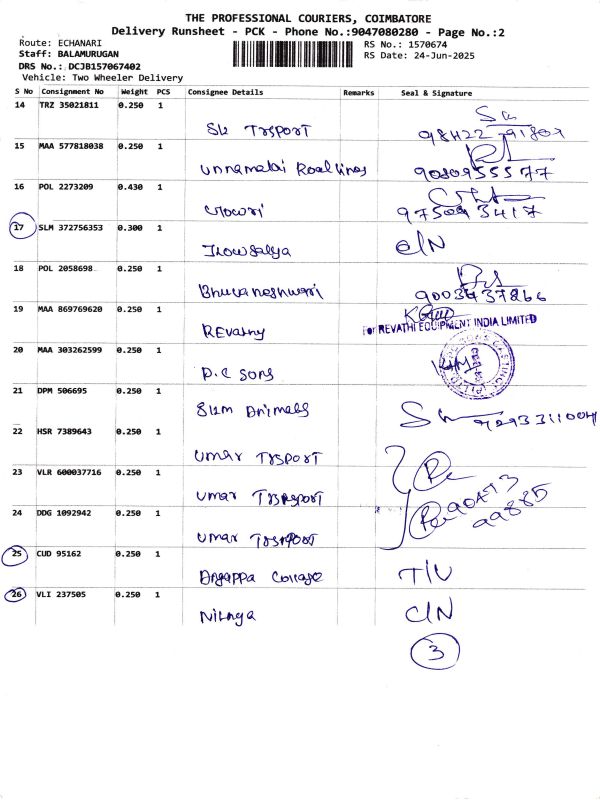 THE PROFESSIONAL COURIERS, COIMBATORE
Delivery Runsheet - PCK - Phone No.:9047080280 - Page No.:2
Route: ECHANARI
RS No.: 1570674
Staff: BALAMURUGAN
RS Date: 24-Jun-2025
DRS No.: DCJB157067402
Vehicle: Two Wheeler Delivery
S No Consignment No Weight PCS Consignee Details Remarks Seal & Signature
14 TRZ 35021811 0.250 1
SK TRSPORT
15 MAA 577818038 0.250 1
Unnamalai Roadlines 9080955577
16 POL 2273209 0.430 1
Gowri
17 SLM 372756353 0.300 1
C/N
18 POL 2058698 0.250 1
Bhuvaneshwari 9003437866
19 MAA 869769620 0.250 1
REvathy For REVATHI EQUIPMENT INDIA LIMITED
20 MAA 303262599 0.250 1
P.C Sons
21 DPM 506695 0.250 1
SKM Animals
22 HSR 7389643 0.250 1
Umar TRSPORT
23 VLR 600037716 0.250 1
Umar TRSPORT
24 DDG 1092942 0.250 1
Umar TRSPORT
25 CUD 95162 0.250 1
Angappa College T/U
26 VLI 237505 0.250 1
C/N
3